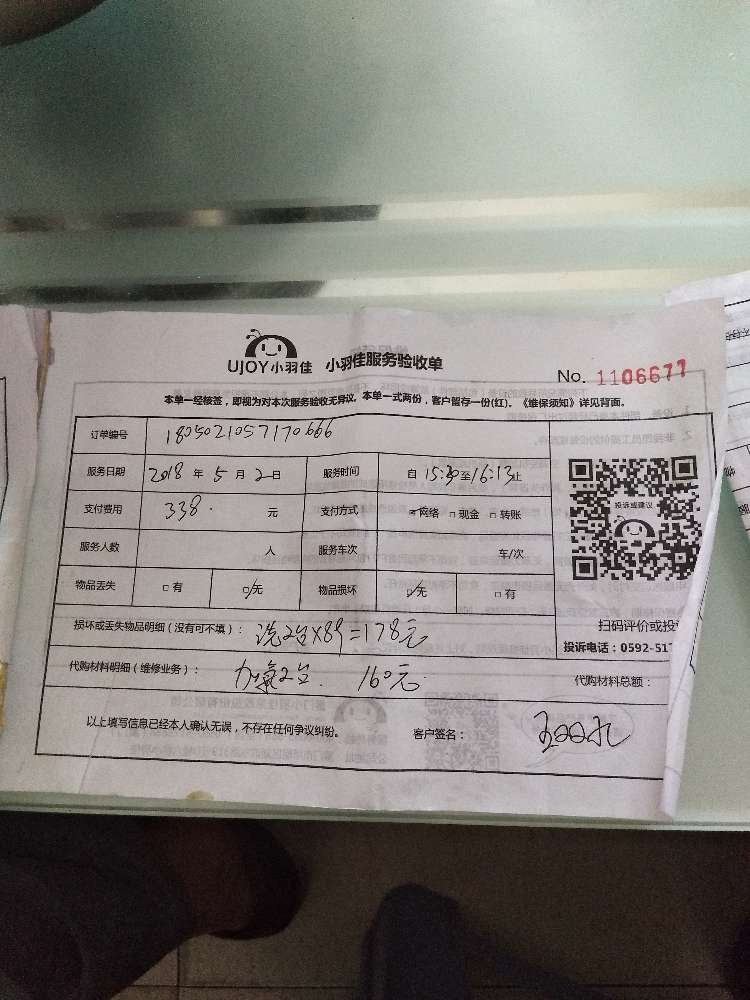 UJOY小羽佳 小羽佳服务验收单
No. 1106677
本单一经核签，即视为对本次服务验收无异议。本单一式两份，客户留存一份(红)。《维保须知》详见背面。
订单编号 1805021057170666
服务日期 2018 年 5 月 2 日 服务时间 自 15:30 至 16:13 止
支付费用 338. 元 支付方式 ☑网络 □现金 □转账
服务人数 人 服务车次 车/次
物品丢失 □有 ☑无 物品损坏 ☑无 □有
投诉或建议
损坏或丢失物品明细（没有可不填）： 洗2台×89=178元
扫码评价或投
投诉电话：0592-517
代购材料明细（维修业务）： 加氟2台. 160元
代购材料总额：
以上填写信息已经本人确认无误，不存在任何争议纠纷。 客户签名：